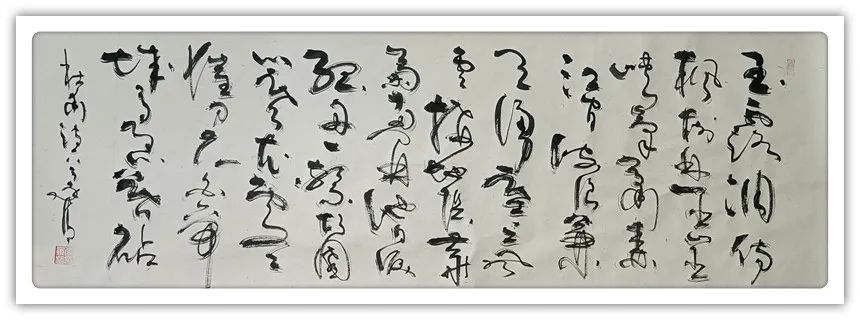 玉露凋傷
楓樹林巫山巫
峽氣蕭森
江間波浪兼
天湧塞上風
雲接地陰叢
菊兩開他日淚
孤舟一繫故園
心寒衣處處
催刀尺白帝
城高急暮砧
杜甫詩